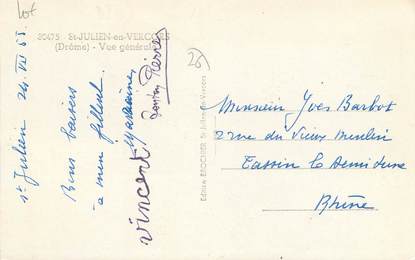 Lot
30475 St-JULIEN-en-VERCORS
(Drôme) - Vue générale
26
St Julien 24. VII 65
Bons baisers
à mon filleul
Marraine,
vincent,
tonton Pierre
Editions BROCHIER, St-Julien-en-Vercors
Monsieur Yves Barbot
22 rue du Vieux Moulin
Tassin la Demi Lune
Rhône